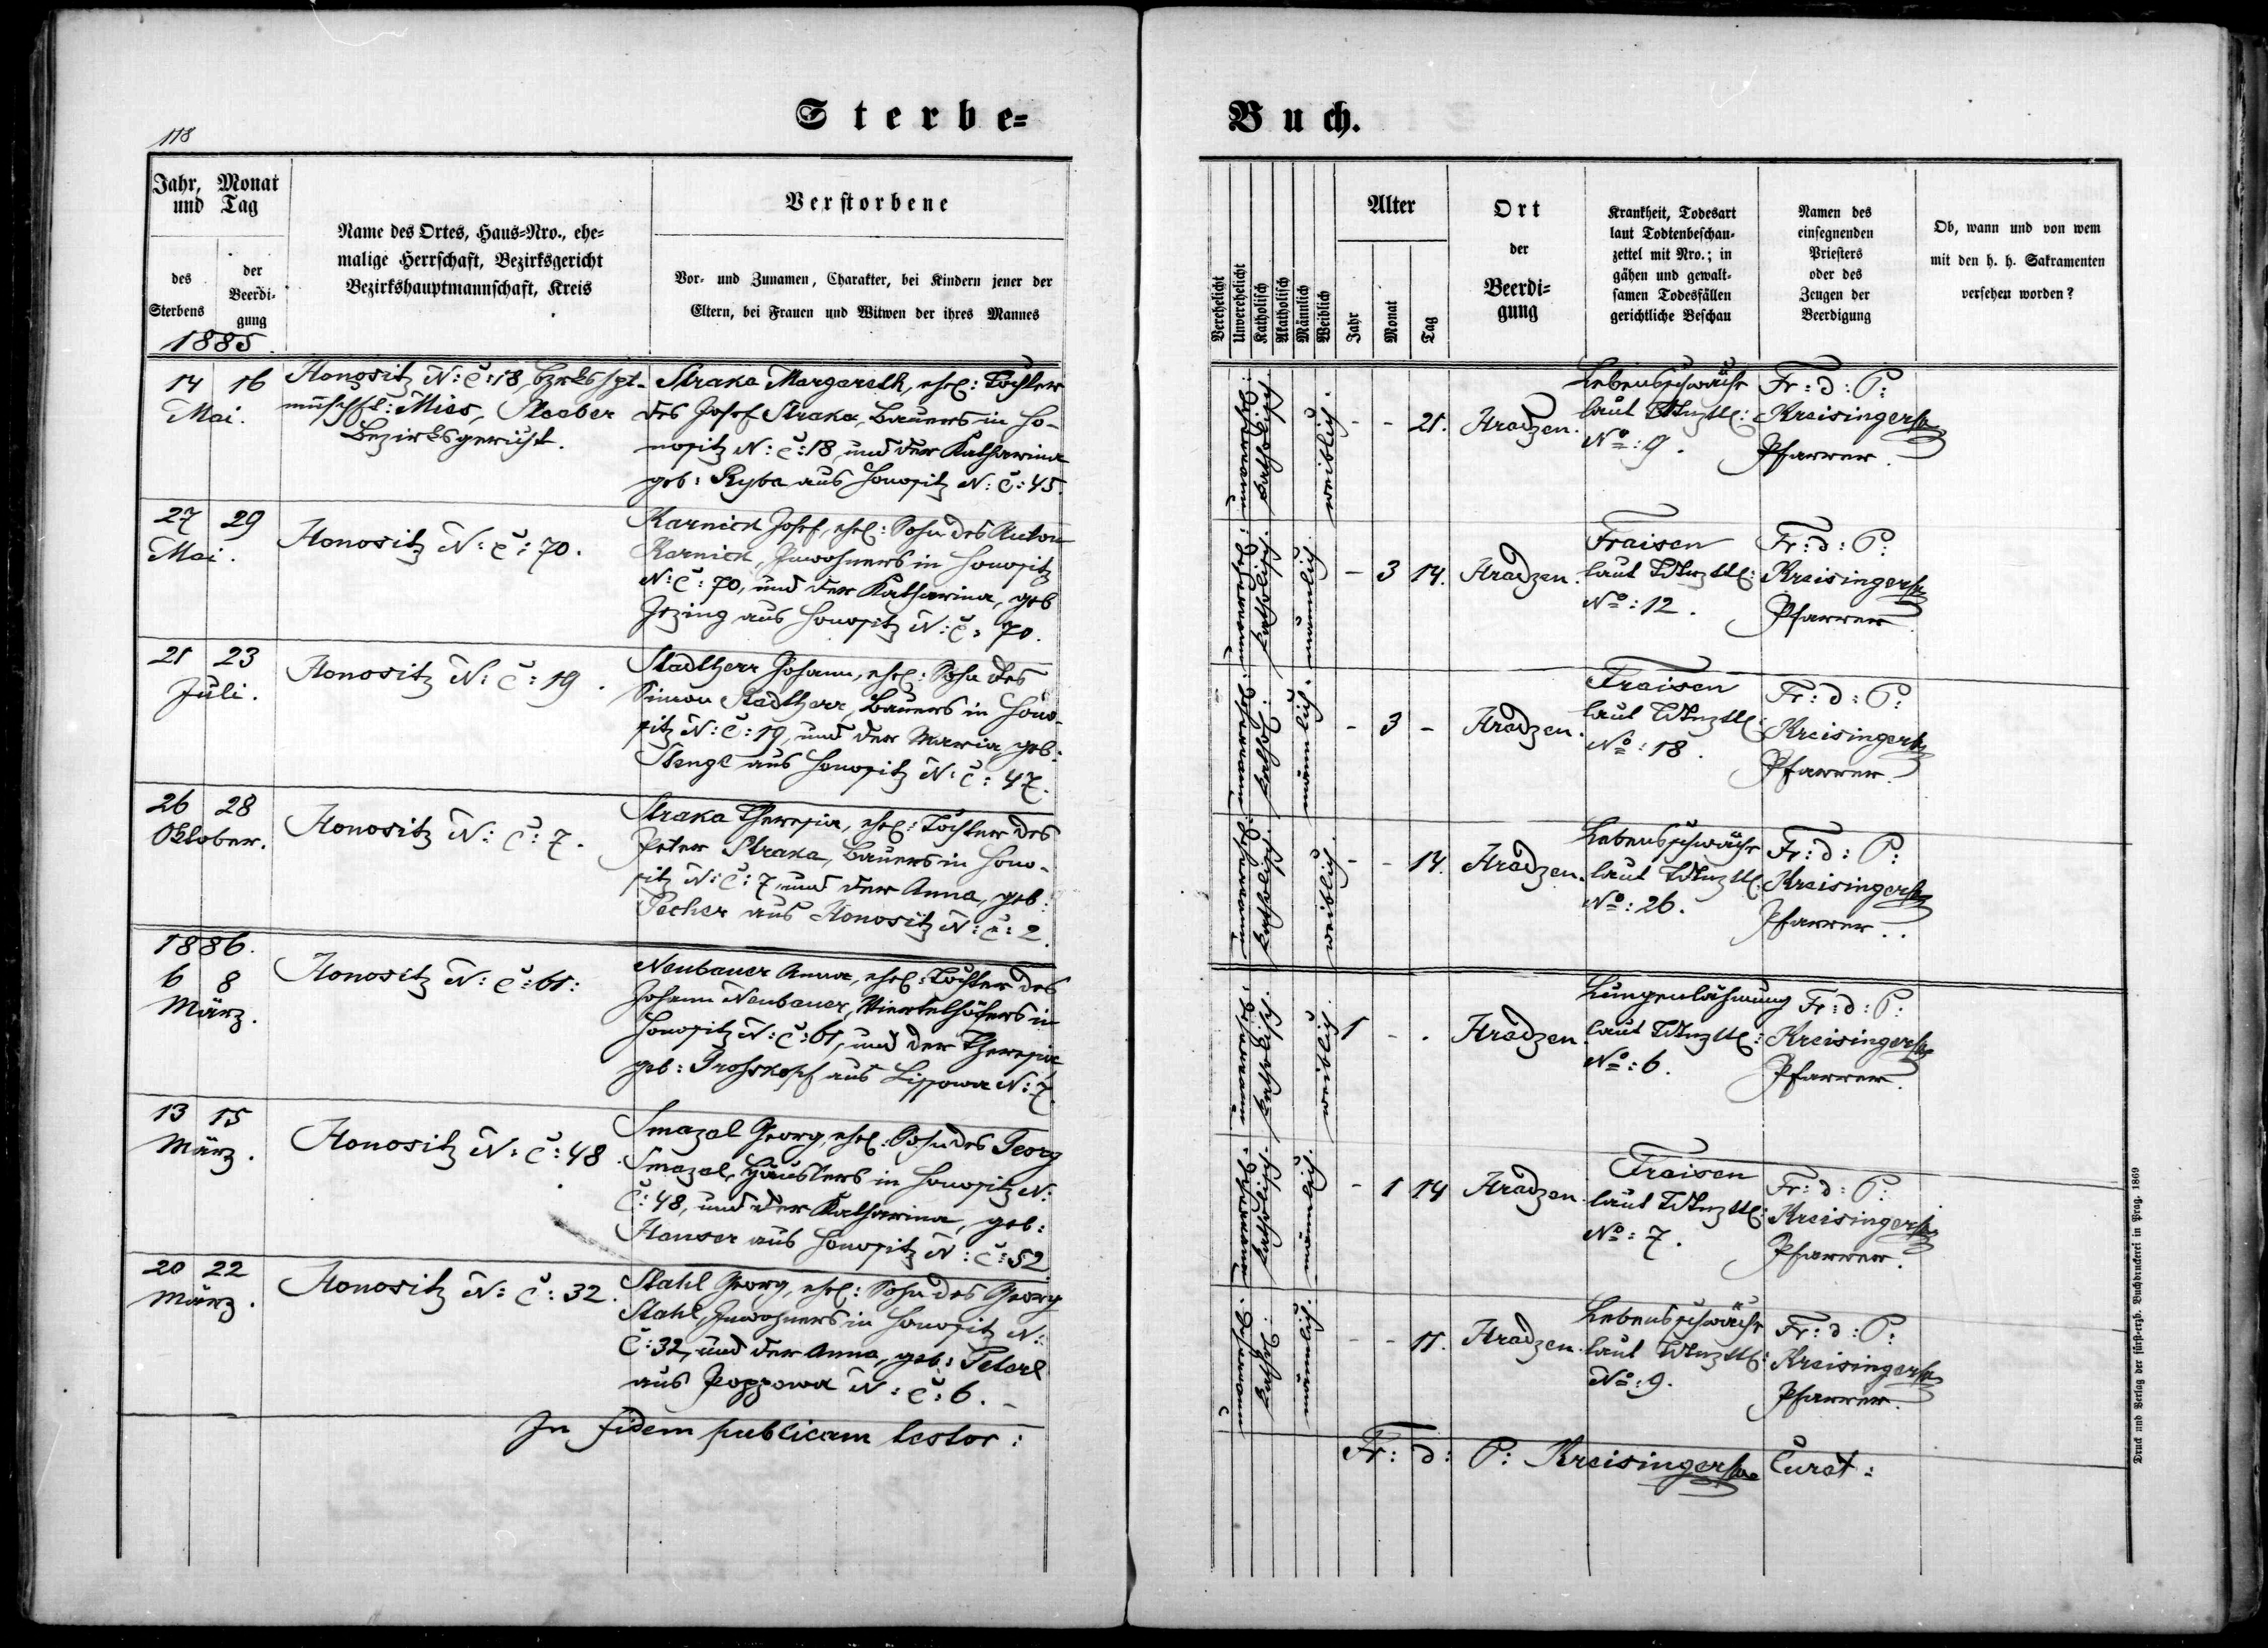 118
Sterbe-
Buch.
Jahr, Monat
und Tag
des
Sterbens
der
Beerdi-
gung
Name des Ortes, Haus-Nro., ehe-
malige Herrschaft, Bezirksgericht
Bezirkshauptmannschaft, Kreis
Verstorbene
Vor- und Zunamen, Charakter, bei Kindern jener der
Eltern, bei Frauen und Witwen der ihres Mannes
Verehelicht
Unverehelicht
Katholisch
Akatholisch
Männlich
Weiblich
Alter
Jahr
Monat
Tag
Ort
der
Beerdi-
gung
Krankheit, Todesart
laut Todtenbeschau-
zettel mit Nro.; in
gähen und gewalt-
samen Todesfällen
gerichtliche Beschau
Namen des
einsegnenden
Priesters
oder des
Zeugen der
Beerdigung
Ob, wann und von wem
mit den h. h. Sakramenten
versehen worden?
1885.
14 16
Mai.
Honositz N: C: 18, Bzrkshpt-
mschft: Mies, Staaber
Bezirksgericht.
Straka Margareth, ehel: Tochter
des Josef Straka, Bauers in Ho-
nositz N: C: 18, und der Katharina
geb: Ryba aus Honositz N: C: 45.
katholisch.
weiblich.
- - 21.
Hradzen.
Lebensschwäche
laut
No: 9.
Fr: d: P:
Kreisinger
Pfarrer.
27 29
Mai.
Honositz N: C: 70.
Karnick Josef, ehel: Sohn des Anton
Karnick, Inwohners in Honositz
N: C: 70, und der Katharina, geb
Jezing aus Honositz N: C: 70.
katholisch.
männlich.
- 3 14.
Hradzen.
Fraisen
laut
No: 12.
Fr: d: P:
Kreisinger
Pfarrer
21 23
Juli.
Honositz N: C: 19.
Stadtherr Johann, ehel: Sohn des
Simon Stadtherr, Bauers in Hono-
sitz N: C: 19, und der Maria geb:
Stengl aus Honositz N: C: 47.
kathol:
männlich.
- 3 -
Hradzen.
Fraisen
laut
No: 18.
Fr: d: P:
Kreisinger
Pfarrer.
26 28
Oktober.
Honositz N: C: 7.
Straka Theresia, ehel: Tochter des
Peter Straka, Bauers in Hono-
sitz N: C: 7, und der Anna, geb:
Pecher aus Honositz N: C: 2.
katholisch.
weiblich.
- - 14.
Hradzen.
Lebensschwäche
laut
No: 26.
Fr: d: P:
Kreisinger
Pfarrer.
1886.
6 8
März.
Honositz N: C: 61:
Neubauer Anna, ehel: Tochter des
Johann Neubauer, Viertelhöfers in
Honositz N: C: 61, und der Theresia
geb: Grosskopf aus Lissowa N: 7.
katholisch.
weiblich.
1 - .
Hradzen.
Lungenlähmung
laut
No: 6.
Fr: d: P:
Kreisinger
Pfarrer.
13 15
März.
Honositz N: C: 48.
Smazal Georg, ehel: Sohn des Georg
Smazal, Häuslers in Honositz N:
C: 48, und der Katharina, geb:
Hanser aus Honositz N: C: 52.
katholisch.
männlich.
- 1 14
Hradzen.
Fraisen
laut
No: 7.
Fr: d: P:
Kreisinger
Pfarrer.
20 22
März.
Honositz N: C: 32.
Stahl Georg, ehel: Sohn des Georg
Stahl, Inwohners in Honositz N:
C: 32, und der Anna, geb: Peterl
aus Poppowa N: C: 6.
kathol:
männlich.
- -
Hradzen.
Lebensschwäche
laut
No: 9.
Fr: d: P:
Kreisinger
Pfarrer.
In fidem publicam testor:
Fr: d: P: Kreisinger Curat:
Druck und Verlag der fürst-erzb. Buchdruckerei in Prag. 1869